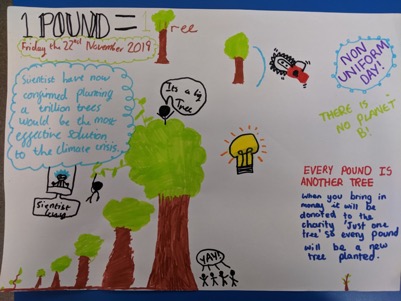 1 POUND = 1 Tree
Friday the 22nd November 2019
NON
UNIFORM
DAY!
Scientist have now
confirmed planting
a trillion trees
would be the most
effective solution
to the climate crisis.
Its a big
Tree
THERE IS
NO PLANET
B!
EVERY POUND IS
ANOTHER TREE
When you bring in
money it will be
donated to the
charity 'Just one
tree' so every pound
will be a new
tree planted.
Scientist
YAY!